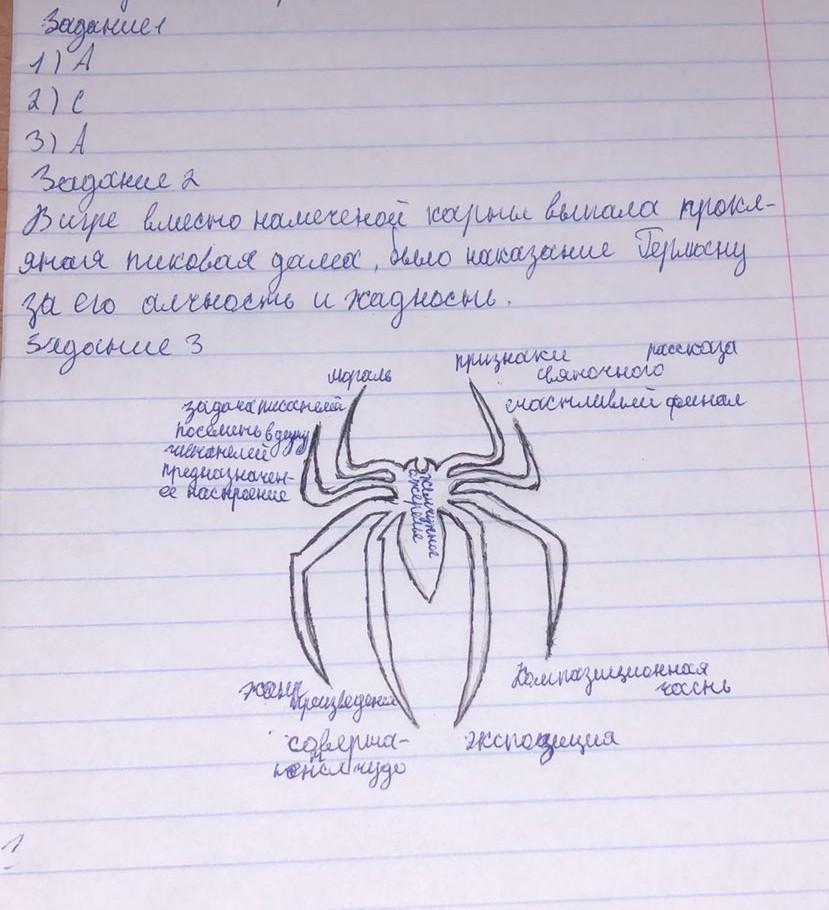 Задание 1
1) А
2) С
3) А
Задание 2
В игре вместо намеченой карты выпала прокл-
ятая пиковая дама, было наказание Германну
за его алчность и жадность.
Задание 3
мораль
признаки рассказа
святочного
задача писателей
поселить в душу
читателей
предназначен-
ее настроение
счастливый финал
жемчужное
ожерелье
жанр
произведения
Композиционная
часть
соверша-
чудо
экспозиция